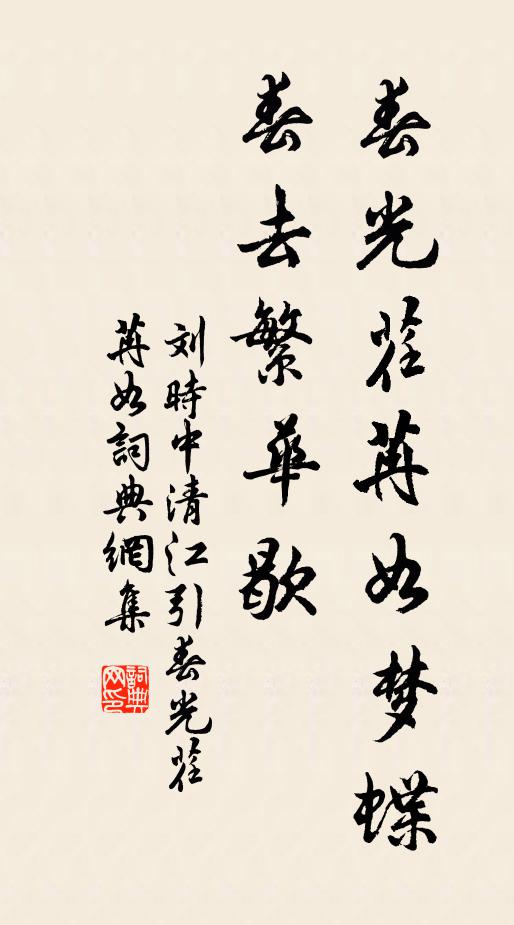 春光荏苒如梦蝶
春去繁華歇
刘時中清江引春光荏
苒如詞典網集
詞典网印